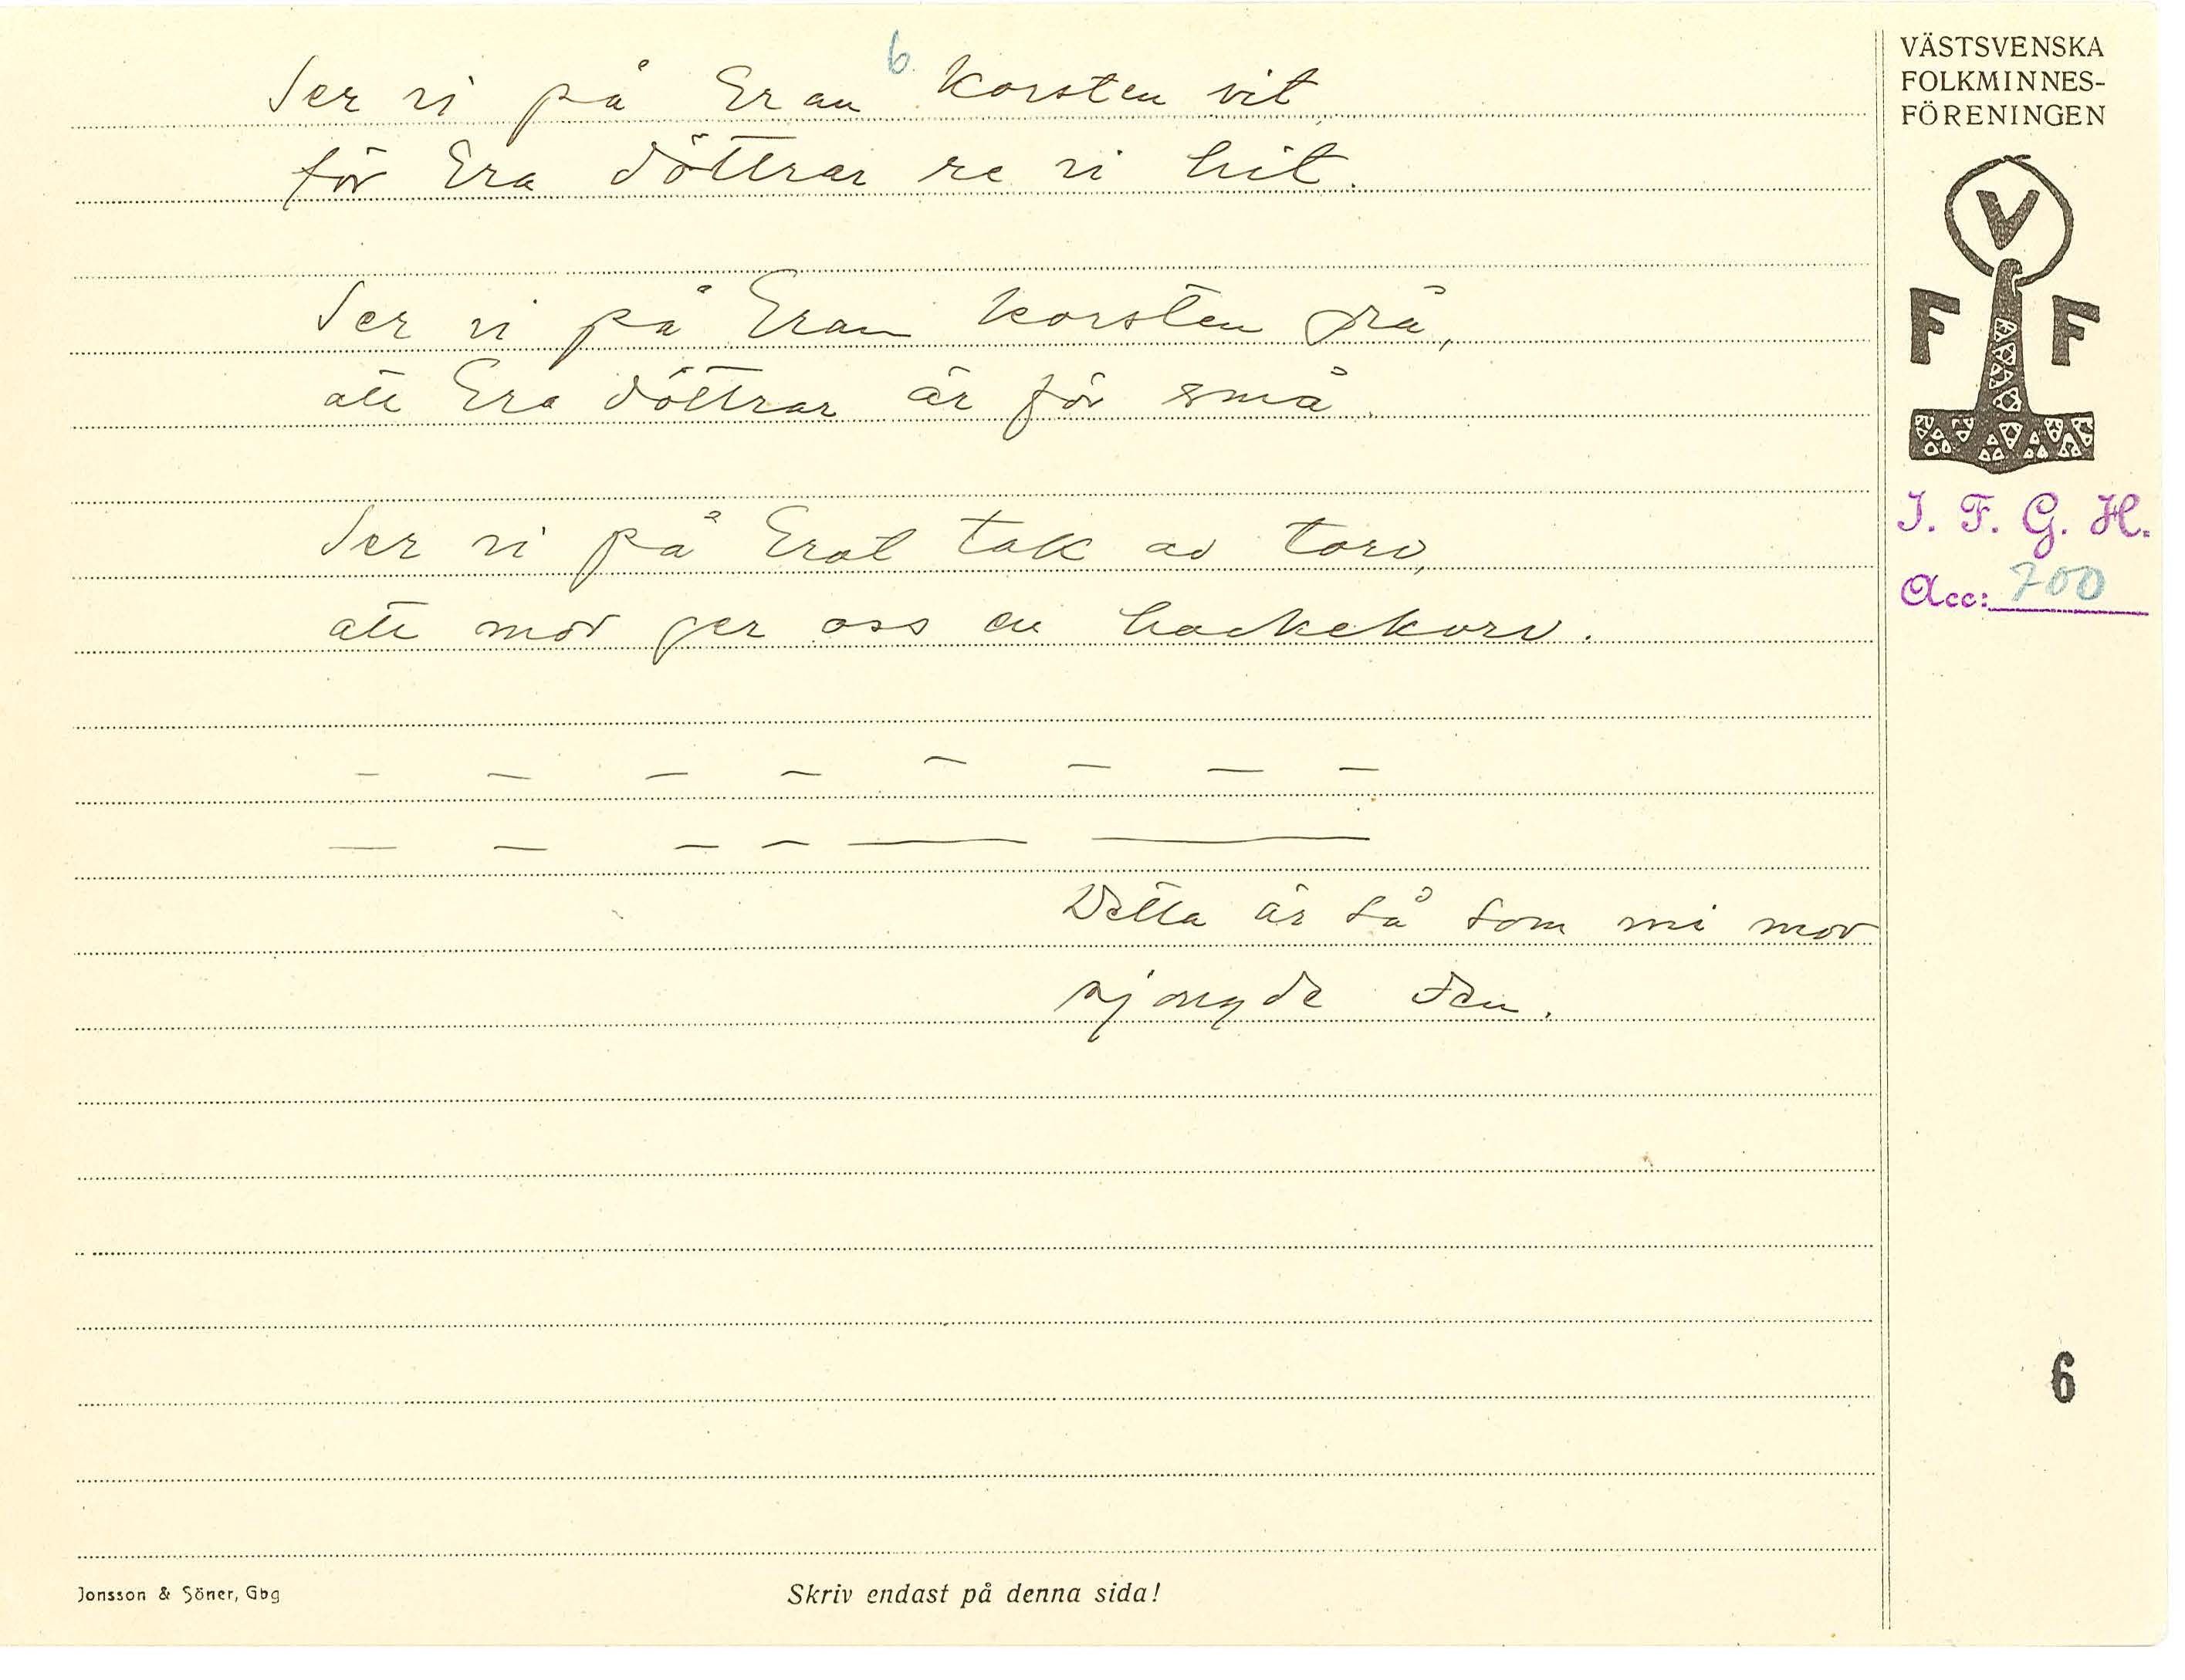 6
Ser vi på Eran korsten vit
för Era döttrar re vi hit.
Ser vi på Eran korsten grå,
att Era döttrar är för små.
Ser vi på Erat tak av torv,
att mor ger oss en hackekorv.
Detta är så som mi mor
sjongde den.
VÄSTSVENSKA
FOLKMINNES-
FÖRENINGEN
V
F F
I. F. G. H.
Acc: 700
6
Jonsson & Söner, Gbg
Skriv endast på denna sida!